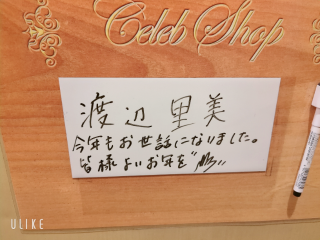 Celeb Shop
渡辺 里美
今年もお世話になりました。
皆様よいお年を"
ULIKE